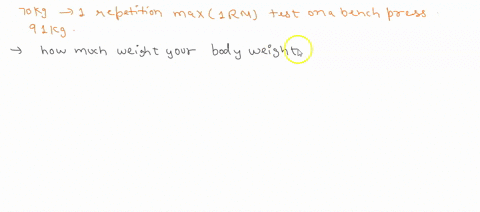 70kg → 1 repetition max (1RM) test on a bench press.
91kg.
→ how much weight your body weight